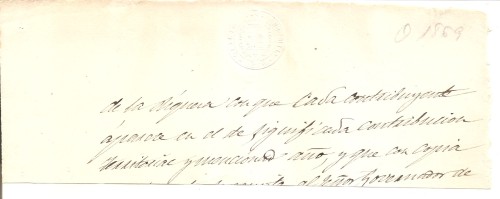 O 1869
de la riqueza con que Cada contribuyente
aparece en el de significada contribucion
territorial y mencionado año, y que con copia
al Señor Governador de